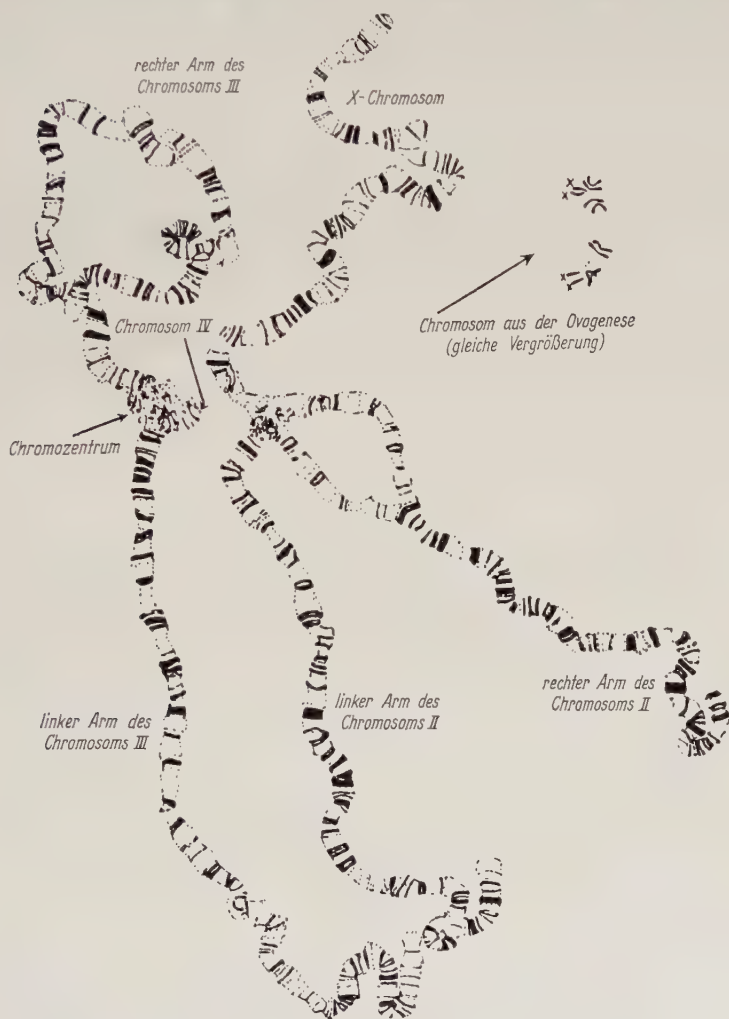 rechter Arm des
Chromosoms III
X-Chromosom
Chromosom IV
Chromosom aus der Ovogenese
(gleiche Vergrößerung)
Chromozentrum
linker Arm des
Chromosoms III
linker Arm des
Chromosoms II
rechter Arm des
Chromosoms II